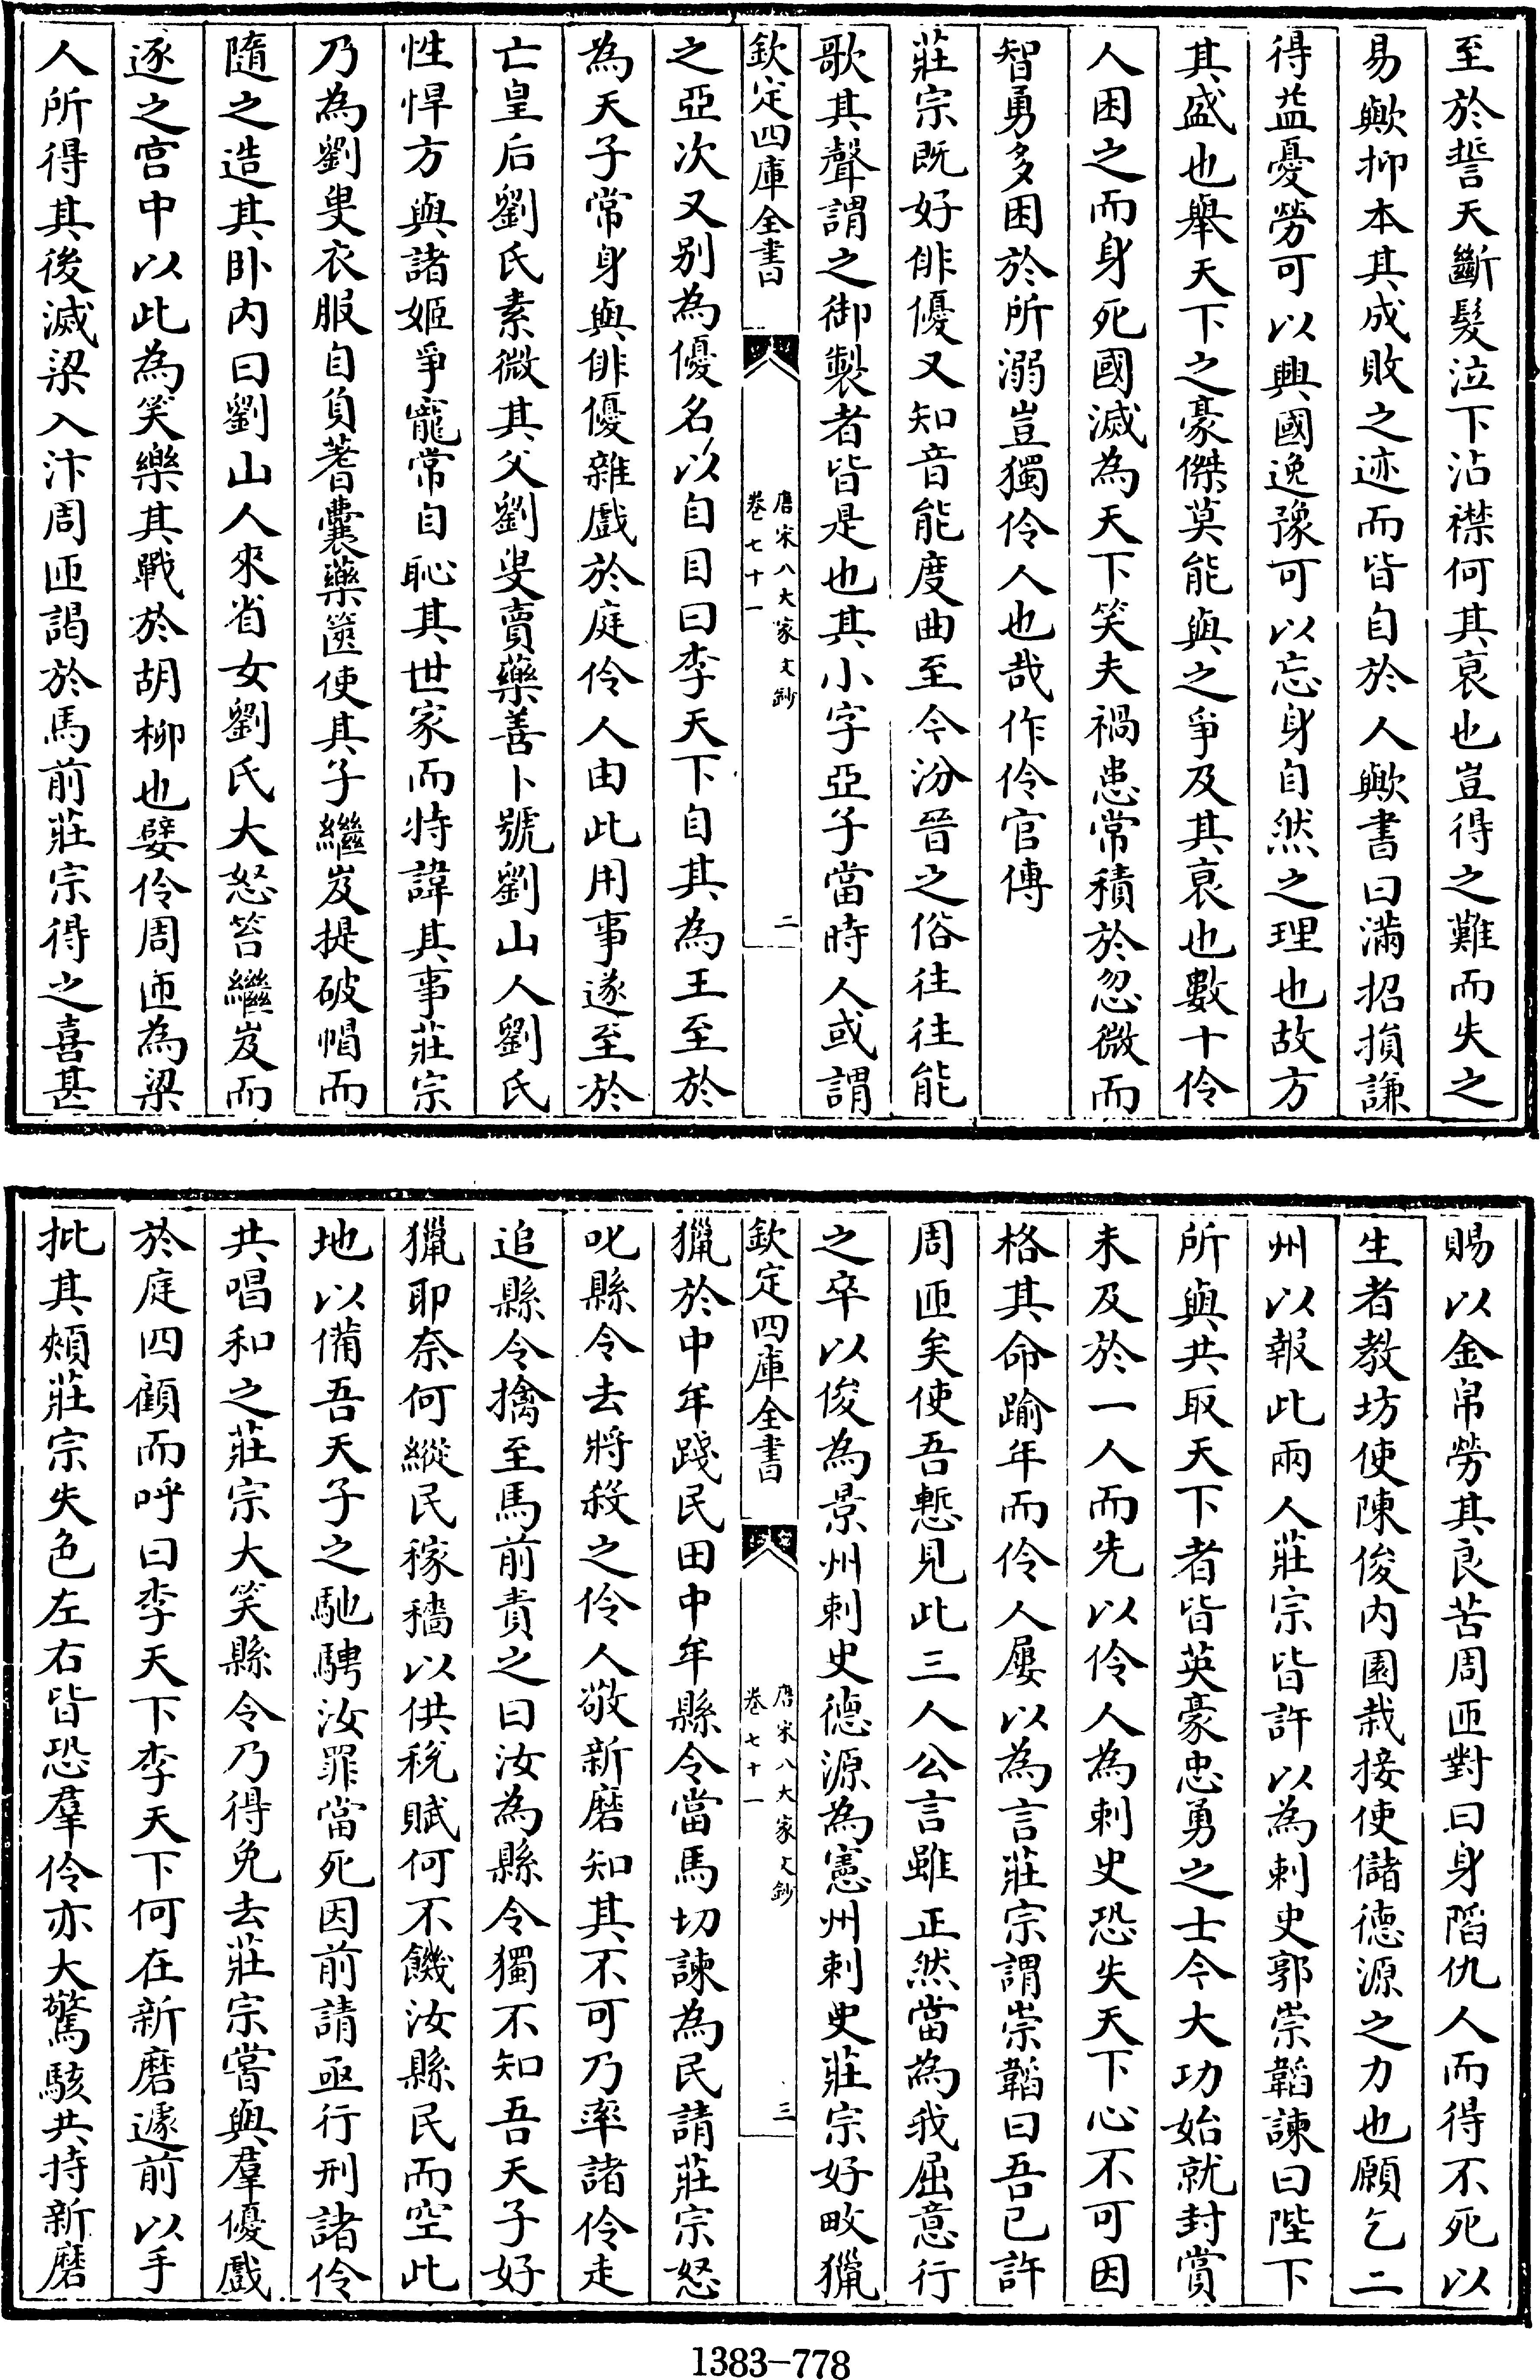 至於誓天斷髮泣下沾襟何其衰也豈得之難而失之
易歟抑本其成敗之迹而皆自於人歟書曰滿招損謙
得益憂勞可以興國逸豫可以忘身自然之理也故方
其盛也舉天下之豪傑莫能與之爭及其衰也數十伶
人困之而身死國滅為天下笑夫禍患常積於忽微而
智勇多困於所溺豈獨伶人也哉作伶官傳
莊宗既好俳優又知音能度曲至今汾晉之俗往往能
歌其聲謂之御製者皆是也其小字亞子當時人或謂
欽定四庫全書
唐宋八大家文鈔
卷七十一
二
之亞次又别為優名以自目曰李天下自其為王至於
為天子常身與俳優雜戲於庭伶人由此用事遂至於
亡皇后劉氏素微其父劉叟賣藥善卜號劉山人劉氏
性悍方與諸姬爭寵常自恥其世家而特諱其事莊宗
乃為劉叟衣服自負蓍囊藥篋使其子繼岌提破帽而
隨之造其卧内曰劉山人來省女劉氏大怒笞繼岌而
逐之宫中以此為笑樂其戰於胡柳也嬖伶周匝為梁
人所得其後滅梁入汴周匝謁於馬前莊宗得之喜甚
賜以金帛勞其良苦周匝對曰身陷仇人而得不死以
生者教坊使陳俊内園栽接使儲德源之力也願乞二
州以報此兩人莊宗皆許以為刺史郭崇韜諫曰陛下
所與共取天下者皆英豪忠勇之士今大功始就封賞
未及於一人而先以伶人為刺史恐失天下心不可因
格其命踰年而伶人屢以為言莊宗謂崇韜曰吾已許
周匝矣使吾慙見此三人公言雖正然當為我屈意行
之卒以俊為景州刺史德源為憲州刺史莊宗好畋獵
欽定四庫全書
唐宋八大家文鈔
卷七十一
三
獵於中牟踐民田中牟縣令當馬切諫為民請莊宗怒
叱縣令去將殺之伶人敬新磨知其不可乃率諸伶走
追縣令擒至馬前責之曰汝為縣令獨不知吾天子好
獵耶奈何縱民稼穡以供稅賦何不饑汝縣民而空此
地以備吾天子之馳騁汝罪當死因前請亟行刑諸伶
共唱和之莊宗大笑縣令乃得免去莊宗嘗與羣優戲
於庭四顧而呼曰李天下李天下何在新磨遽前以手
批其頰莊宗失色左右皆恐羣伶亦大驚駭共持新磨
1383-778